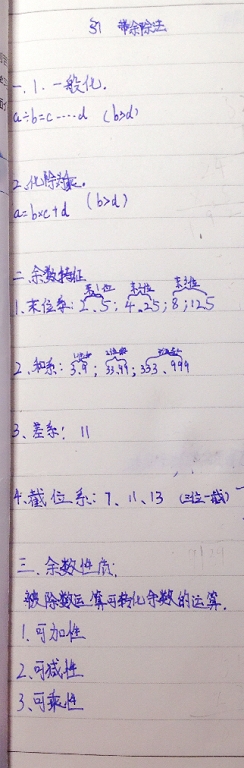 §1 带余除法
一、1. 一般化.
a÷b=c……d (b>d)
2. 化除为乘.
a=b×c+d (b>d)
二、余数特征
末1位 末2位 末3位
1、末位系: 2、5; 4、25; 8;125
2、和系: 3、9; 33、99; 333、999
3、差系: 11
4、截位系: 7、11、13 (三位一截)
三、余数性质:
被除数运算可转化余数的运算.
1. 可加性
2. 可减性
3、可乘性